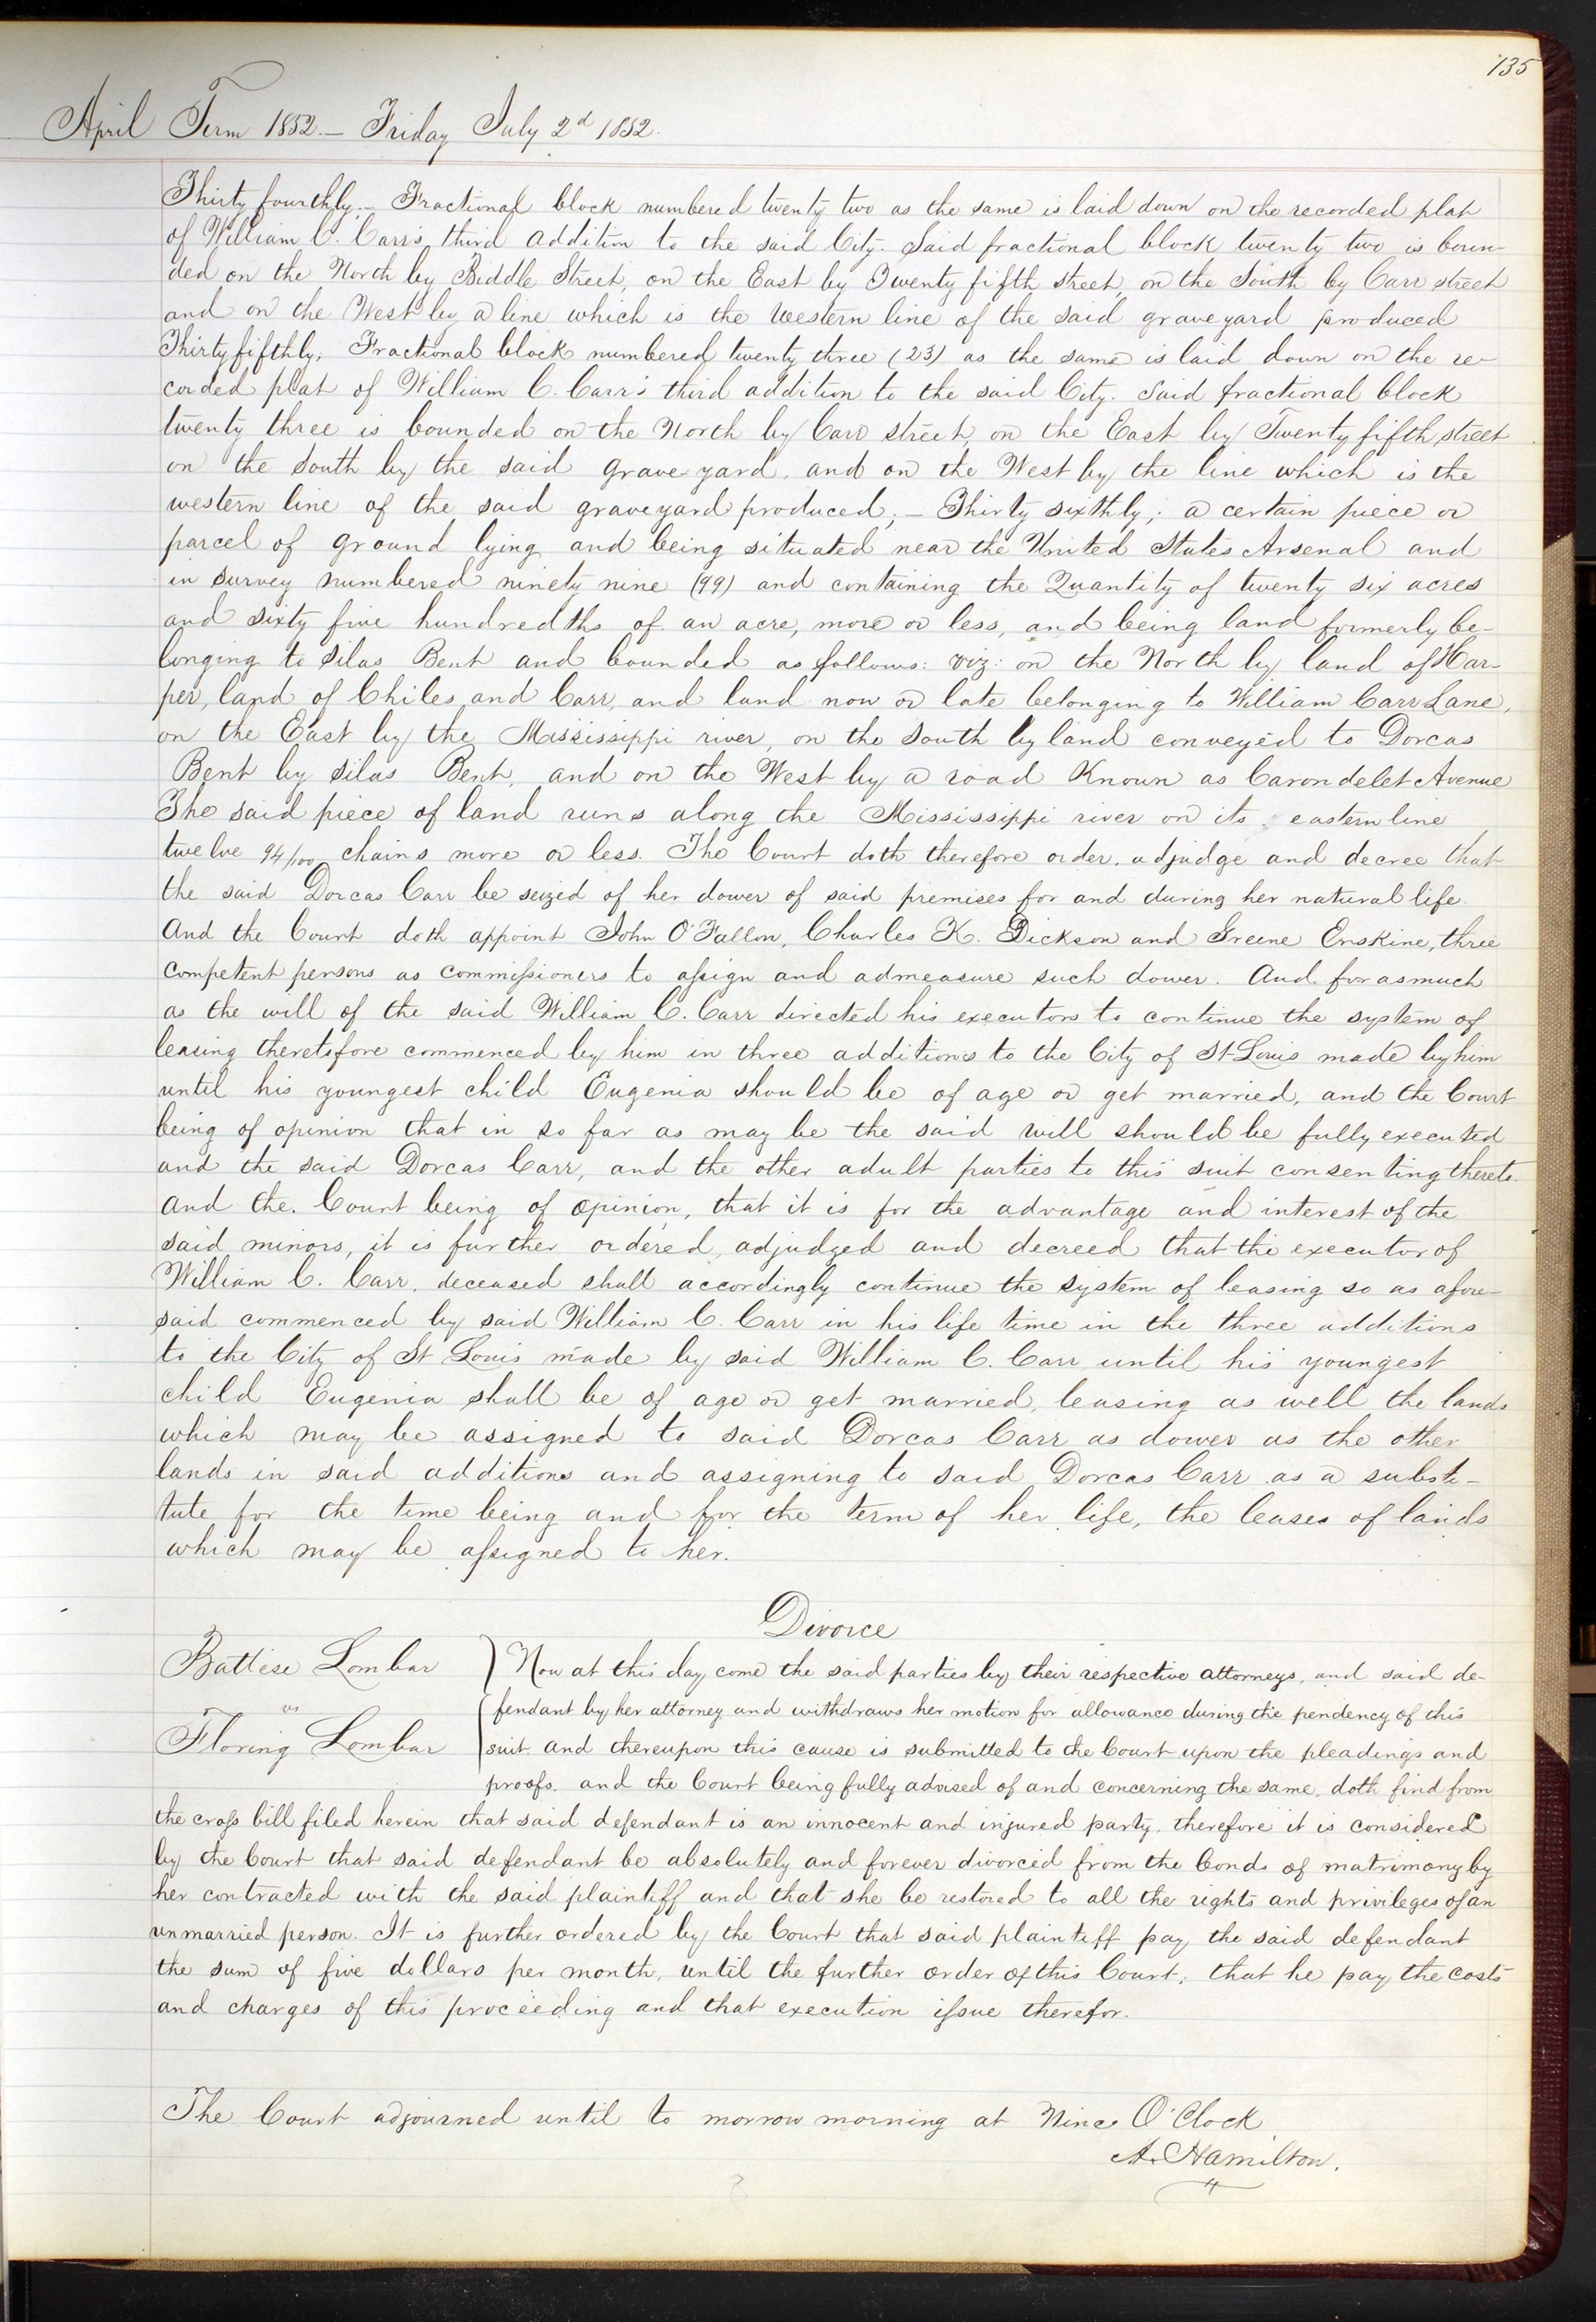 135
April Term 1852.— Friday July 2d 1852.
Thirty fourthly.— Fractional block numbered twenty two as the same is laid down on the recorded plat
of William C. Carr's third addition to the said City. Said fractional block twenty two is boun-
ded on the North by Biddle Street, on the East by Twenty fifth street, on the South by Carr street
and on the West by a line which is the western line of the said graveyard produced
Thirty fifthly; Fractional block numbered twenty three (23) as the same is laid down on the re-
corded plat of William C. Carr's third addition to the said City. Said fractional block
twenty three is bounded on the North by Carr street, on the East by Twenty fifth street
on the South by the said grave yard, and on the West by the line which is the
western line of the said graveyard produced;— Thirty sixthly; a certain piece or
parcel of ground lying and being situated near the United States Arsenal and
in survey numbered ninety nine (99) and containing the Quantity of twenty six acres
and sixty five hundredths of an acre, more or less, and being land formerly be-
longing to Silas Bent and bounded as follows: viz: on the North by land of Har-
per, land of Chiles and Carr, and land now or late belonging to William Carr Lane,
on the East by the Mississippi river, on the South by land conveyed to Dorcas
Bent by Silas Bent, and on the West by a road Known as Carondelet Avenue
The said piece of land runs along the Mississippi river on its eastern line
twelve 94/100 chains more or less. The Court doth therefore order, adjudge and decree that
the said Dorcas Carr be seized of her dower of said premises for and during her natural life.
And the Court doth appoint John O'Fallon, Charles K. Dickson and Greene Erskine, three
competent persons as commissioners to assign and admeasure such dower. And forasmuch
as the will of the said William C. Carr directed his executors to continue the system of
leasing theretofore commenced by him in three additions to the City of St Louis made by him
until his youngest child Eugenia should be of age or get married, and the Court
being of opinion that in so far as may be the said will should be fully executed
and the said Dorcas Carr, and the other adult parties to this suit consenting thereto.
And the Court being of opinion, that it is for the advantage and interest of the
said minors, it is further ordered, adjudged and decreed that the executor of
William C. Carr, deceased shall accordingly continue the system of leasing so as afore-
said commenced by said William C. Carr in his life time in the three additions
to the City of St Louis made by said William C. Carr until his youngest
child Eugenia shall be of age or get married, leasing as well the lands
which may be assigned to said Dorcas Carr as dower as the other
lands in said additions and assigning to said Dorcas Carr as a substi-
tute for the time being and for the term of her life, the leases of lands
which may be assigned to her.
Divorce
Battese Lombar
vs
Floring Lombar
Now at this day come the said parties by their respective attorneys, and said de-
fendant by her attorney and withdraws her motion for allowance during the pendency of this
suit and thereupon this cause is submitted to the Court upon the pleadings and
proofs, and the Court being fully advised of and concerning the same, doth find from
the cross bill filed herein that said defendant is an innocent and injured party, therefore it is considered
by the Court that said defendant be absolutely and forever divorced from the bonds of matrimony by
her contracted with the said plaintiff and that she be restored to all the rights and privileges of an
unmarried person. It is further ordered by the Court that said plaintiff pay the said defendant
the sum of five dollars per month, until the further order of this Court; that he pay the costs
and charges of this proceeding and that execution issue therefor.
The Court adjourned until to morrow morning at Nine O'Clock
A. Hamilton.